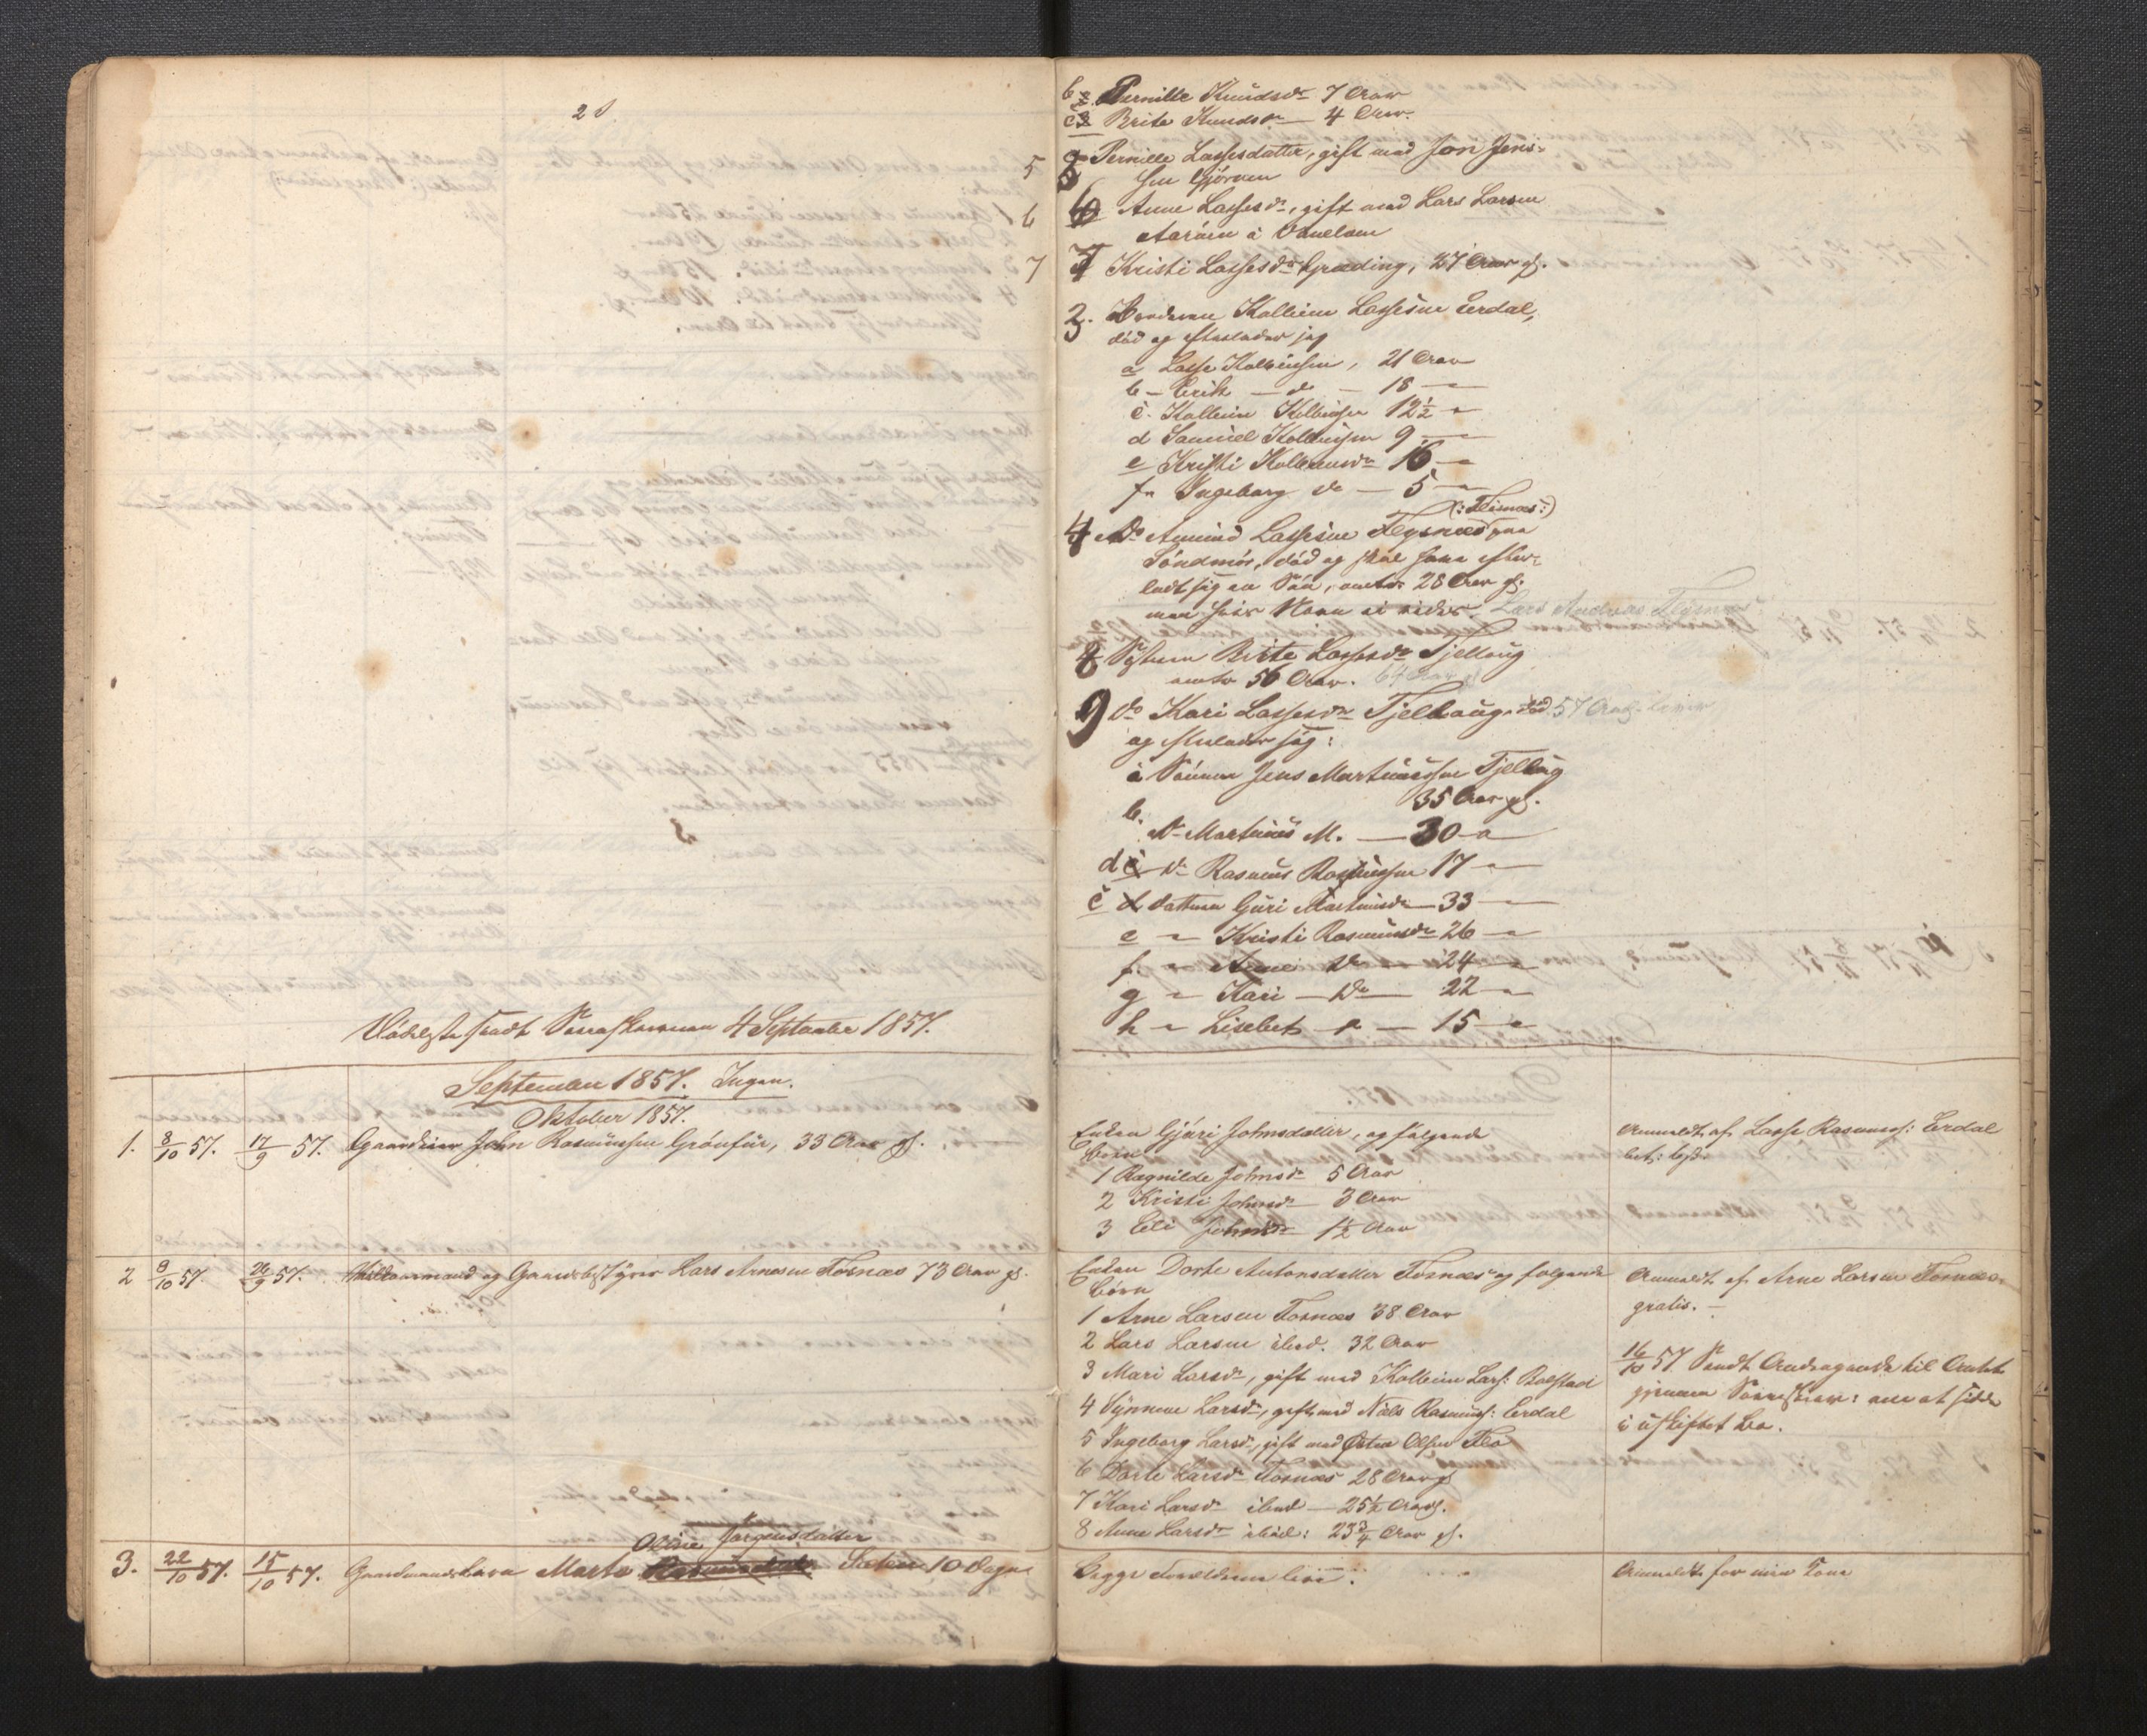 28.
5
6
7
Udskrift sendt Sorenskriveren 4 September 1857.
September 1857. Ingen.
Oktober 1857.
1. 8/10 57. 17/9 57. Gaardbrr John Rasmussen Grönfur, 33 Aar gl.
2 9/10 57. 26/9 57. og Gaardbestyrer Lars Arnesen Tosnæs 73 Aar gl.
Oline Jørgensdatter
3. 22/10 57. 15/10 57. Gaardmandsbarn Marte Rasmusdatter 10 Dage
b Pernille Knudsdr 7 Aar
c Brite Knudsdr 4 Aar.
5 Pernille Lassesdatter, gift med Jon Jens-
sen Gjörven
6 Anne Lassesdr, gift med Lars Larsen
Aaröen i
7 Kristi Lassesdr Græding, 27 Aar gl.
3. Broderen Kolbein Lassesen Erdal,
död og efterlader sig
a Lasse Kolbeinsen, 21 Aar
b - Erik - do - 18 -
c. Kolbein Kolbeinsen 12½ -
d Samuel Kolbeinsen 9 -
e Kristi Kolbeinsdr 16 -
f. Ingeborg do - 5 -
(: Flisnæs:)
4 do Amund Lassesen Flysnæs paa
Söndmör, död og skal have efter-
ladt sig en Sön, omtr 28 Aar gl.
men hvis Navn ei vides. Lars Andreas Flisnæs
8 Systeren Brite Lassesdr Tjellaug
omtr 56 Aar. 64 Aar gl
9 do Kari Lassesdr Tjellaug, död 57 Aar
og efterlader sig:
a Sönnen Jens Martinussen Tjellaug
35 Aar gl.
b.
do Martinus M. - 30 -
d c do Rasmus Rasmussen 17 -
c d datteren Guri Martinusdr 33 -
e - Kristi Rasmusdr 26 -
f. - Anne do 24 -
g - Kari - do - 22 -
h - Lisebet - - 15 -
Enken Gjuri Johnsdatter, og følgende
Börn
1 Ragnilde Johnsdr 5 Aar
2 Kristi Johnsdr 3 Aar
3 Eli Johnsdr 1½ Aar
Anmeldt af Lasse Rasmuss: Erdal
Enken Dorte Antonsdatter Tosnæs og følgende
Börn
1 Arne Larsen Tosnæs 38 Aar
2 Lars Larsen ibid. 32 Aar
3 Mari Larsdr, gift med Kolbein Lars: Bolstad
4 Synneve Larsdr, gift med Nils Rasmuss: Erdal
5 Ingeborg Larsdr, gift med Østen Olsen Flo
6 Dorte Larsdr Tosnæs 28 Aar gl
7 Kari Larsdr ibid - 25½ Aar gl.
8 Anne Larsdr ibid: 23¾ Aar gl.
Anmeldt af Arne Larsen Tosnæs.
gratis.
16/10 57 Sendt Andragende til Amtet
gjennem Sorenskriver: om at sidde
i uskiftet Bo.
Begge Forældrene leve.
Anmeldt for min Kone